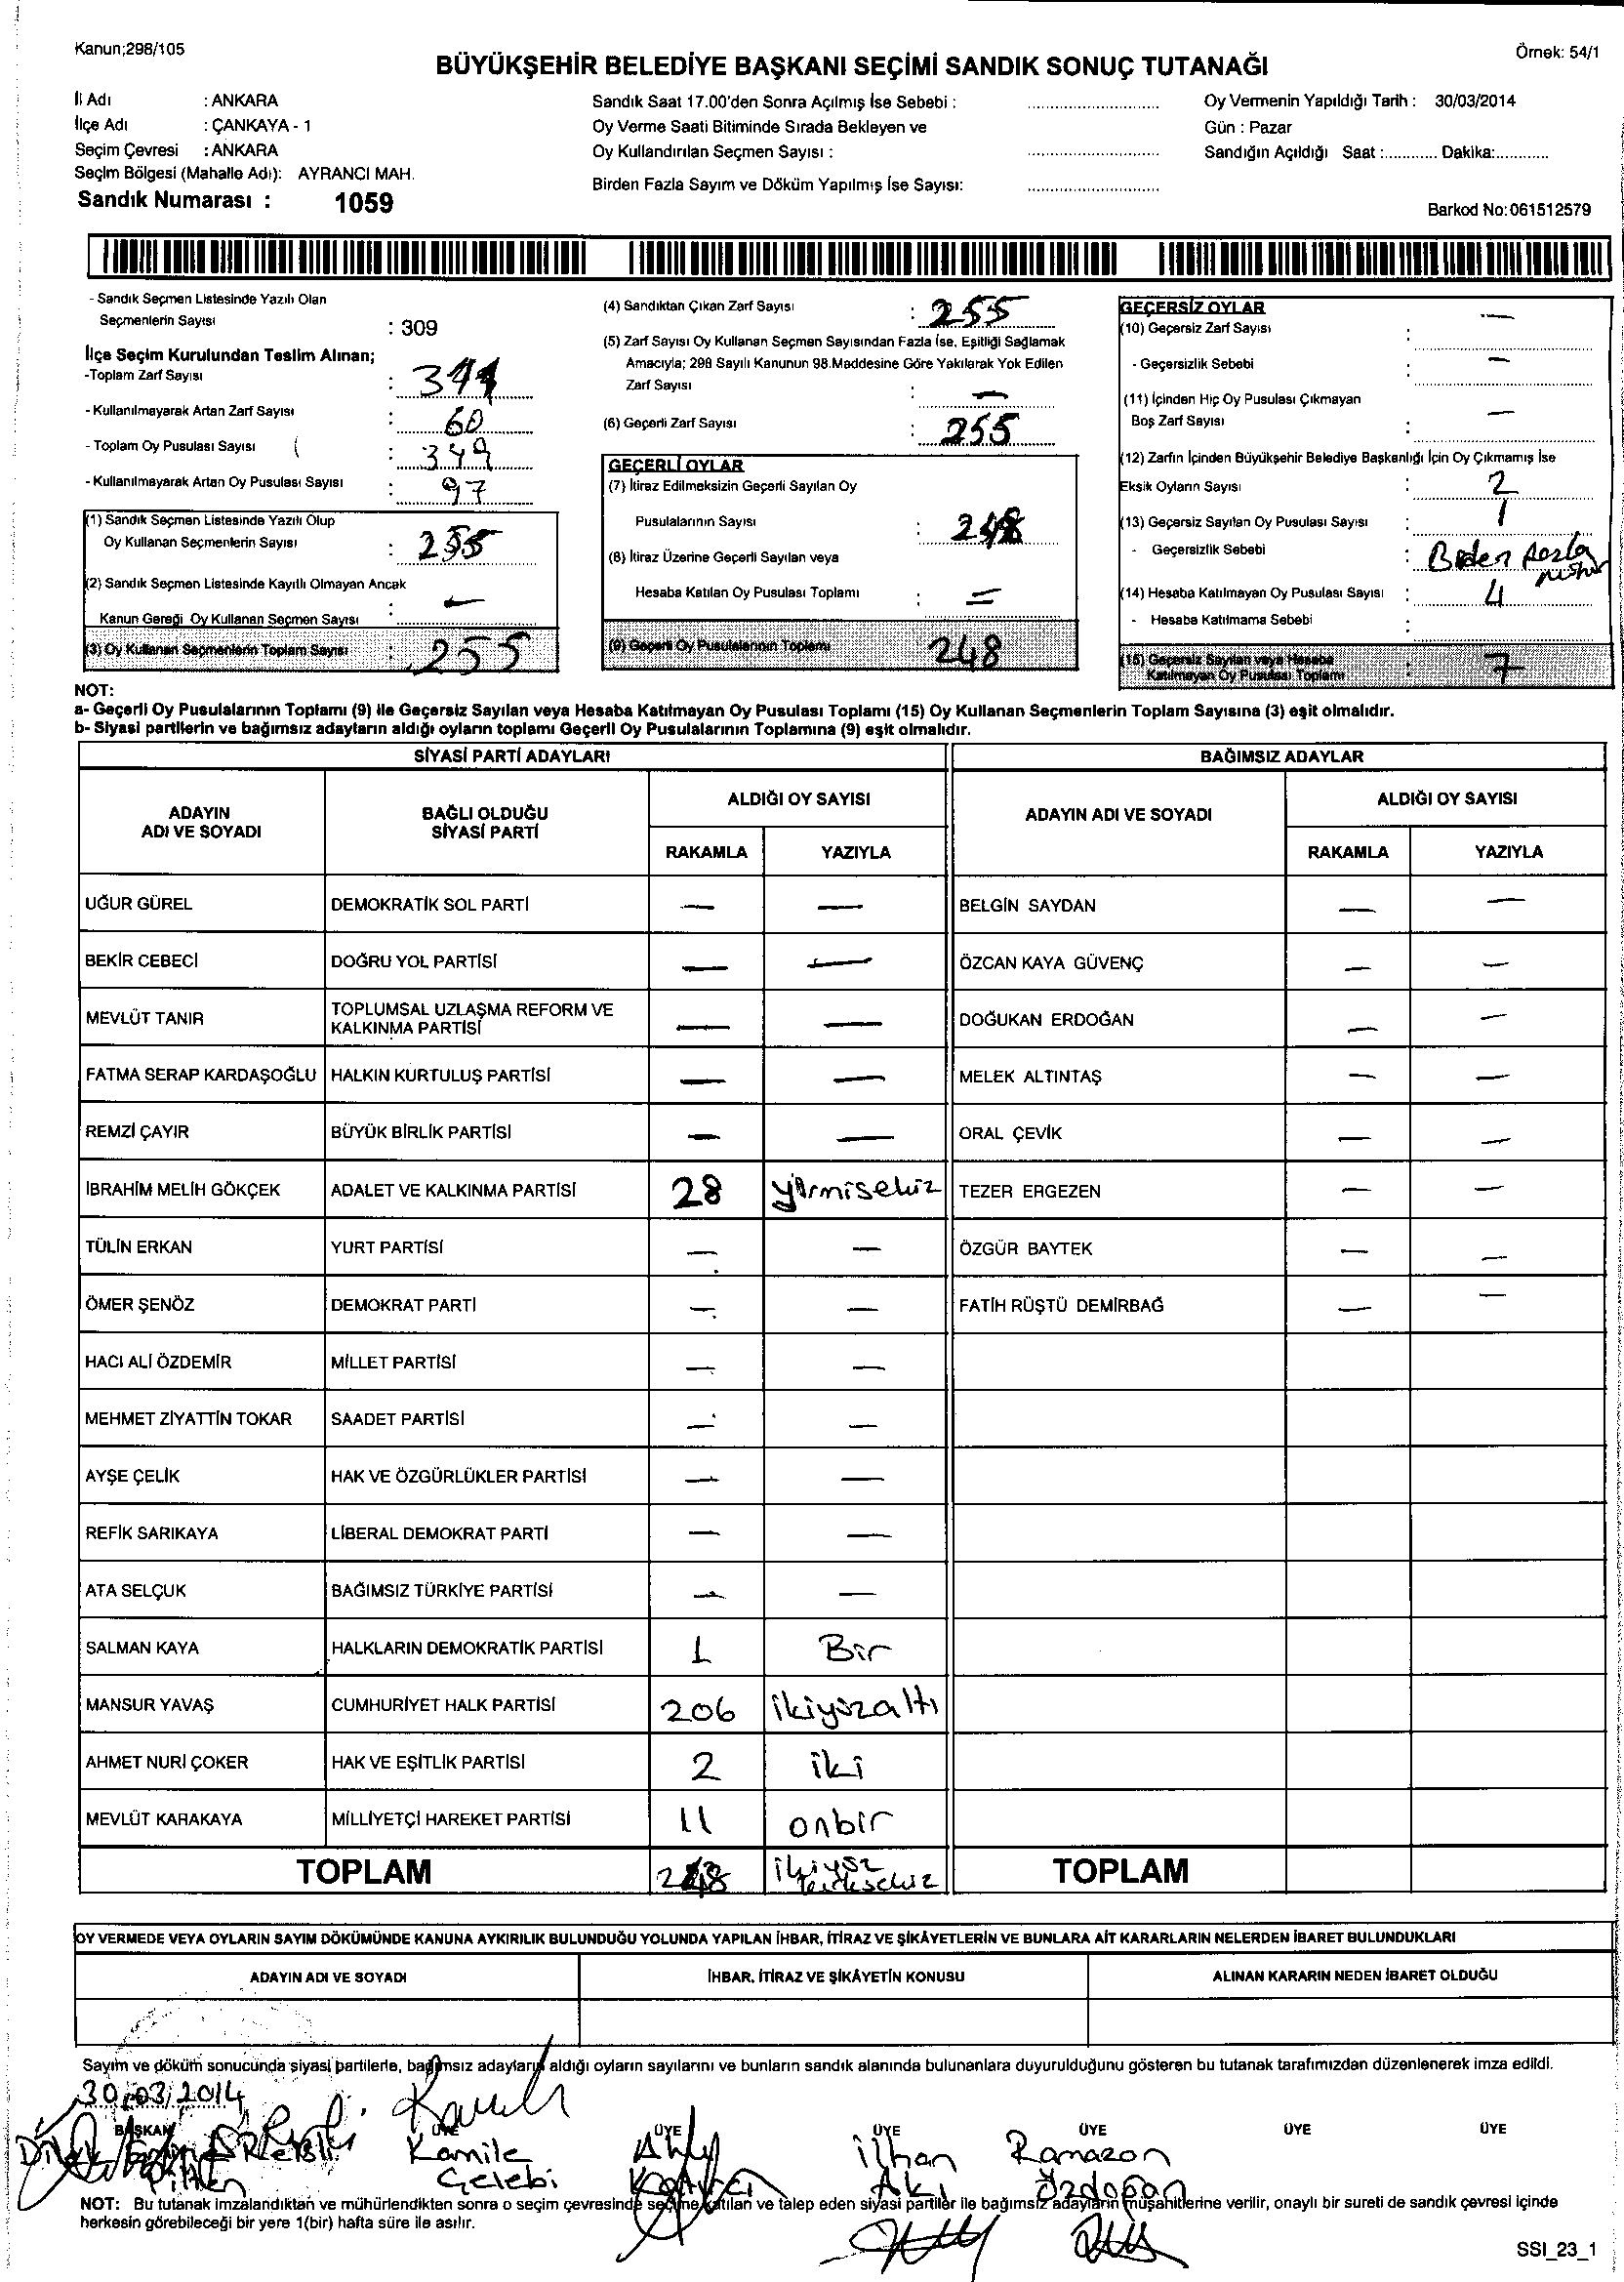 Kanun;298/105
Örnek: 54/1
BÜYÜKŞEHİR BELEDİYE BAŞKANI SEÇİMİ SANDIK SONUÇ TUTANAĞI
İl Adı : ANKARA
İlçe Adı : ÇANKAYA - 1
Seçim Çevresi : ANKARA
Seçim Bölgesi (Mahalle Adı): AYRANCI MAH.
Sandık Numarası : 1059
Sandık Saat 17.00'den Sonra Açılmış İse Sebebi :
Oy Verme Saati Bitiminde Sırada Bekleyen ve
Oy Kullandırılan Seçmen Sayısı :
Birden Fazla Sayım ve Döküm Yapılmış İse Sayısı:
Oy Vermenin Yapıldığı Tarih : 30/03/2014
Gün : Pazar
Sandığın Açıldığı Saat :............ Dakika:............
Barkod No:061512579
- Sandık Seçmen Listesinde Yazılı Olan
Seçmenlerin Sayısı : 309
İlçe Seçim Kurulundan Teslim Alınan;
-Toplam Zarf Sayısı :
- Kullanılmayarak Artan Zarf Sayısı : 60
- Toplam Oy Pusulası Sayısı : 349
- Kullanılmayarak Artan Oy Pusulası Sayısı : 97
(1) Sandık Seçmen Listesinde Yazılı Olup
Oy Kullanan Seçmenlerin Sayısı : 255
(2) Sandık Seçmen Listesinde Kayıtlı Olmayan Ancak
Kanun Gereği Oy Kullanan Seçmen Sayısı : —
(3) Oy Kullanan Seçmenlerin Toplam Sayısı : 255
(4) Sandıktan Çıkan Zarf Sayısı : 255
(5) Zarf Sayısı Oy Kullanan Seçmen Sayısından Fazla İse, Eşitliği Sağlamak
Amacıyla; 298 Sayılı Kanunun 98.Maddesine Göre Yakılarak Yok Edilen
Zarf Sayısı : —
(6) Geçerli Zarf Sayısı : 255
GEÇERLİ OYLAR
(7) İtiraz Edilmeksizin Geçerli Sayılan Oy
Pusulalarının Sayısı : 248
(8) İtiraz Üzerine Geçerli Sayılan veya
Hesaba Katılan Oy Pusulası Toplamı : —
(9) Geçerli Oy Pusulalarının Toplamı 248
GEÇERSİZ OYLAR
(10) Geçersiz Zarf Sayısı : —
- Geçersizlik Sebebi : —
(11) İçinden Hiç Oy Pusulası Çıkmayan
Boş Zarf Sayısı : —
(12) Zarfın İçinden Büyükşehir Belediye Başkanlığı İçin Oy Çıkmamış İse
Eksik Oyların Sayısı : 2
(13) Geçersiz Sayılan Oy Pusulası Sayısı : 1
- Geçersizlik Sebebi :
(14) Hesaba Katılmayan Oy Pusulası Sayısı : 4
- Hesaba Katılmama Sebebi :
(15) Geçersiz Sayılan veya Hesaba
Katılmayan Oy Pusulası Toplamı : 7
NOT:
a- Geçerli Oy Pusulalarının Toplamı (9) ile Geçersiz Sayılan veya Hesaba Katılmayan Oy Pusulası Toplamı (15) Oy Kullanan Seçmenlerin Toplam Sayısına (3) eşit olmalıdır.
b- Siyasi partilerin ve bağımsız adayların aldığı oyların toplamı Geçerli Oy Pusulalarının Toplamına (9) eşit olmalıdır.
SİYASİ PARTİ ADAYLARI
ADAYIN ADI VE SOYADI
BAĞLI OLDUĞU SİYASİ PARTİ
ALDIĞI OY SAYISI
RAKAMLA YAZIYLA
UĞUR GÜREL DEMOKRATİK SOL PARTİ — —
BEKİR CEBECİ DOĞRU YOL PARTİSİ — —
MEVLÜT TANIR TOPLUMSAL UZLAŞMA REFORM VE KALKINMA PARTİSİ — —
FATMA SERAP KARDAŞOĞLU HALKIN KURTULUŞ PARTİSİ — —
REMZİ ÇAYIR BÜYÜK BİRLİK PARTİSİ — —
İBRAHİM MELİH GÖKÇEK ADALET VE KALKINMA PARTİSİ 28 yirmisekiz
TÜLİN ERKAN YURT PARTİSİ — —
ÖMER ŞENÖZ DEMOKRAT PARTİ — —
HACI ALİ ÖZDEMİR MİLLET PARTİSİ — —
MEHMET ZİYATTİN TOKAR SAADET PARTİSİ — —
AYŞE ÇELİK HAK VE ÖZGÜRLÜKLER PARTİSİ — —
REFİK SARIKAYA LİBERAL DEMOKRAT PARTİ — —
ATA SELÇUK BAĞIMSIZ TÜRKİYE PARTİSİ — —
SALMAN KAYA HALKLARIN DEMOKRATİK PARTİSİ 1 Bir
MANSUR YAVAŞ CUMHURİYET HALK PARTİSİ 206 ikiyüzaltı
AHMET NURİ ÇOKER HAK VE EŞİTLİK PARTİSİ 2 iki
MEVLÜT KARAKAYA MİLLİYETÇİ HAREKET PARTİSİ 11 onbir
TOPLAM 248 ikiyüz
BAĞIMSIZ ADAYLAR
ADAYIN ADI VE SOYADI
ALDIĞI OY SAYISI
RAKAMLA YAZIYLA
BELGİN SAYDAN — —
ÖZCAN KAYA GÜVENÇ — —
DOĞUKAN ERDOĞAN — —
MELEK ALTINTAŞ — —
ORAL ÇEVİK — —
TEZER ERGEZEN — —
ÖZGÜR BAYTEK — —
FATİH RÜŞTÜ DEMİRBAĞ — —
TOPLAM
OY VERMEDE VEYA OYLARIN SAYIM DÖKÜMÜNDE KANUNA AYKIRILIK BULUNDUĞU YOLUNDA YAPILAN İHBAR, İTİRAZ VE ŞİKÂYETLERİN VE BUNLARA AİT KARARLARIN NELERDEN İBARET BULUNDUKLARI
ADAYIN ADI VE SOYADI
İHBAR, İTİRAZ VE ŞİKÂYETİN KONUSU
ALINAN KARARIN NEDEN İBARET OLDUĞU
Sayım ve döküm sonucunda siyasi partilerle, bağımsız adayların aldığı oyların sayılarını ve bunların sandık alanında bulunanlara duyurulduğunu gösteren bu tutanak tarafımızdan düzenlenerek imza edildi.
30/03/2014
BAŞKAN ÜYE ÜYE ÜYE ÜYE ÜYE ÜYE
Kamile Çelebi
İlhan Akı
Ramazan Özdoğan
NOT: Bu tutanak imzalandıktan ve mühürlendikten sonra o seçim çevresinde seçime katılan ve talep eden siyasi partiler ile bağımsız adayların müşahitlerine verilir, onaylı bir sureti de sandık çevresi içinde
herkesin görebileceği bir yere 1(bir) hafta süre ile asılır.
SSI_23_1